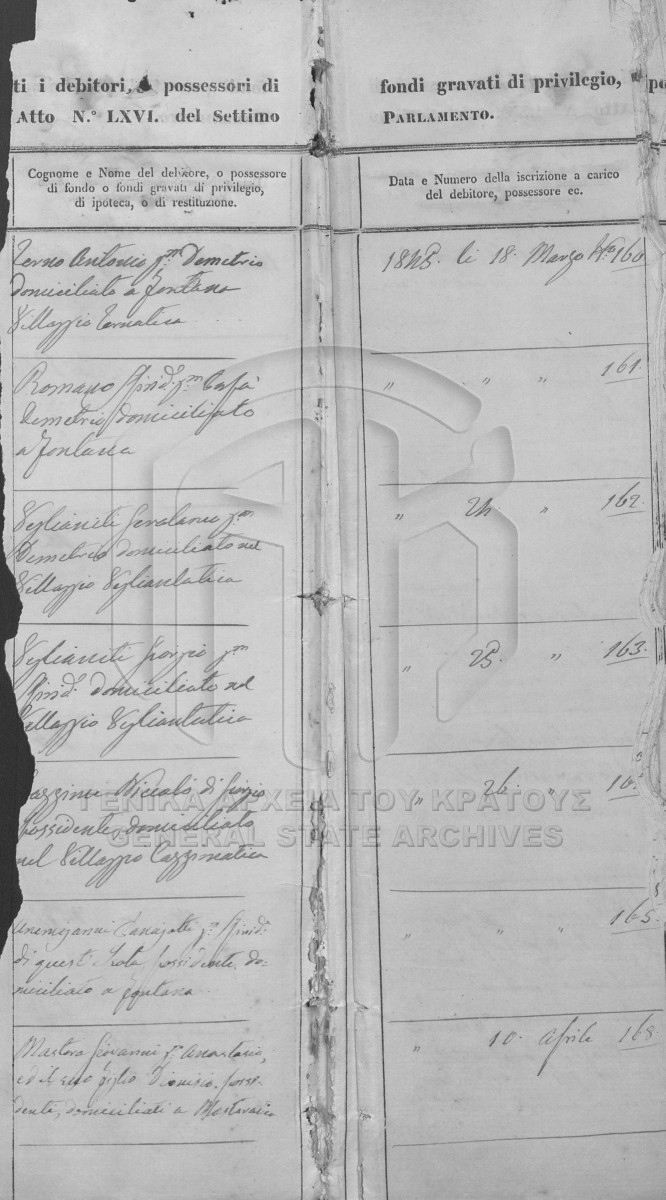 ti i debitori, o possessori di fondi gravati di privilegio,
Atto N.º LXVI. del Settimo PARLAMENTO.
Cognome e Nome del debitore, o possessore
di fondo o fondi gravati di privilegio,
di ipoteca, o di restituzione.
Data e Numero della iscrizione a carico
del debitore, possessore ec.
Antonio q.m Demetrio
domiciliato a Fontana
Villaggio
1845. li 18. Marzo N.o 160
Romano Spirid. q.m
Demetrio domiciliato
a Fontana
" " " 161.
Veglianiti q.m
Demetrio domiciliato nel
Villaggio Veglianitatica
" 24. " 162.
Veglianiti Giorgio q.m
Spirid. domiciliato nel
Villaggio Veglianitatica
" 25. " 163.
Niccolò di Giorgio
possidente, domiciliato
nel Villaggio
" 26. " 16
q.m Spirid.
di quest' Isola possidente, do-
miciliato a Fontana
" " " 165.
Mastora Giovanni q.m Anastasio,
ed il suo figlio Dionisio, possi-
dente, domiciliati a
" 10. Aprile 168
ΓΕΝΙΚΑ ΑΡΧΕΙΑ ΤΟΥ ΚΡΑΤΟΥΣ
GENERAL STATE ARCHIVES